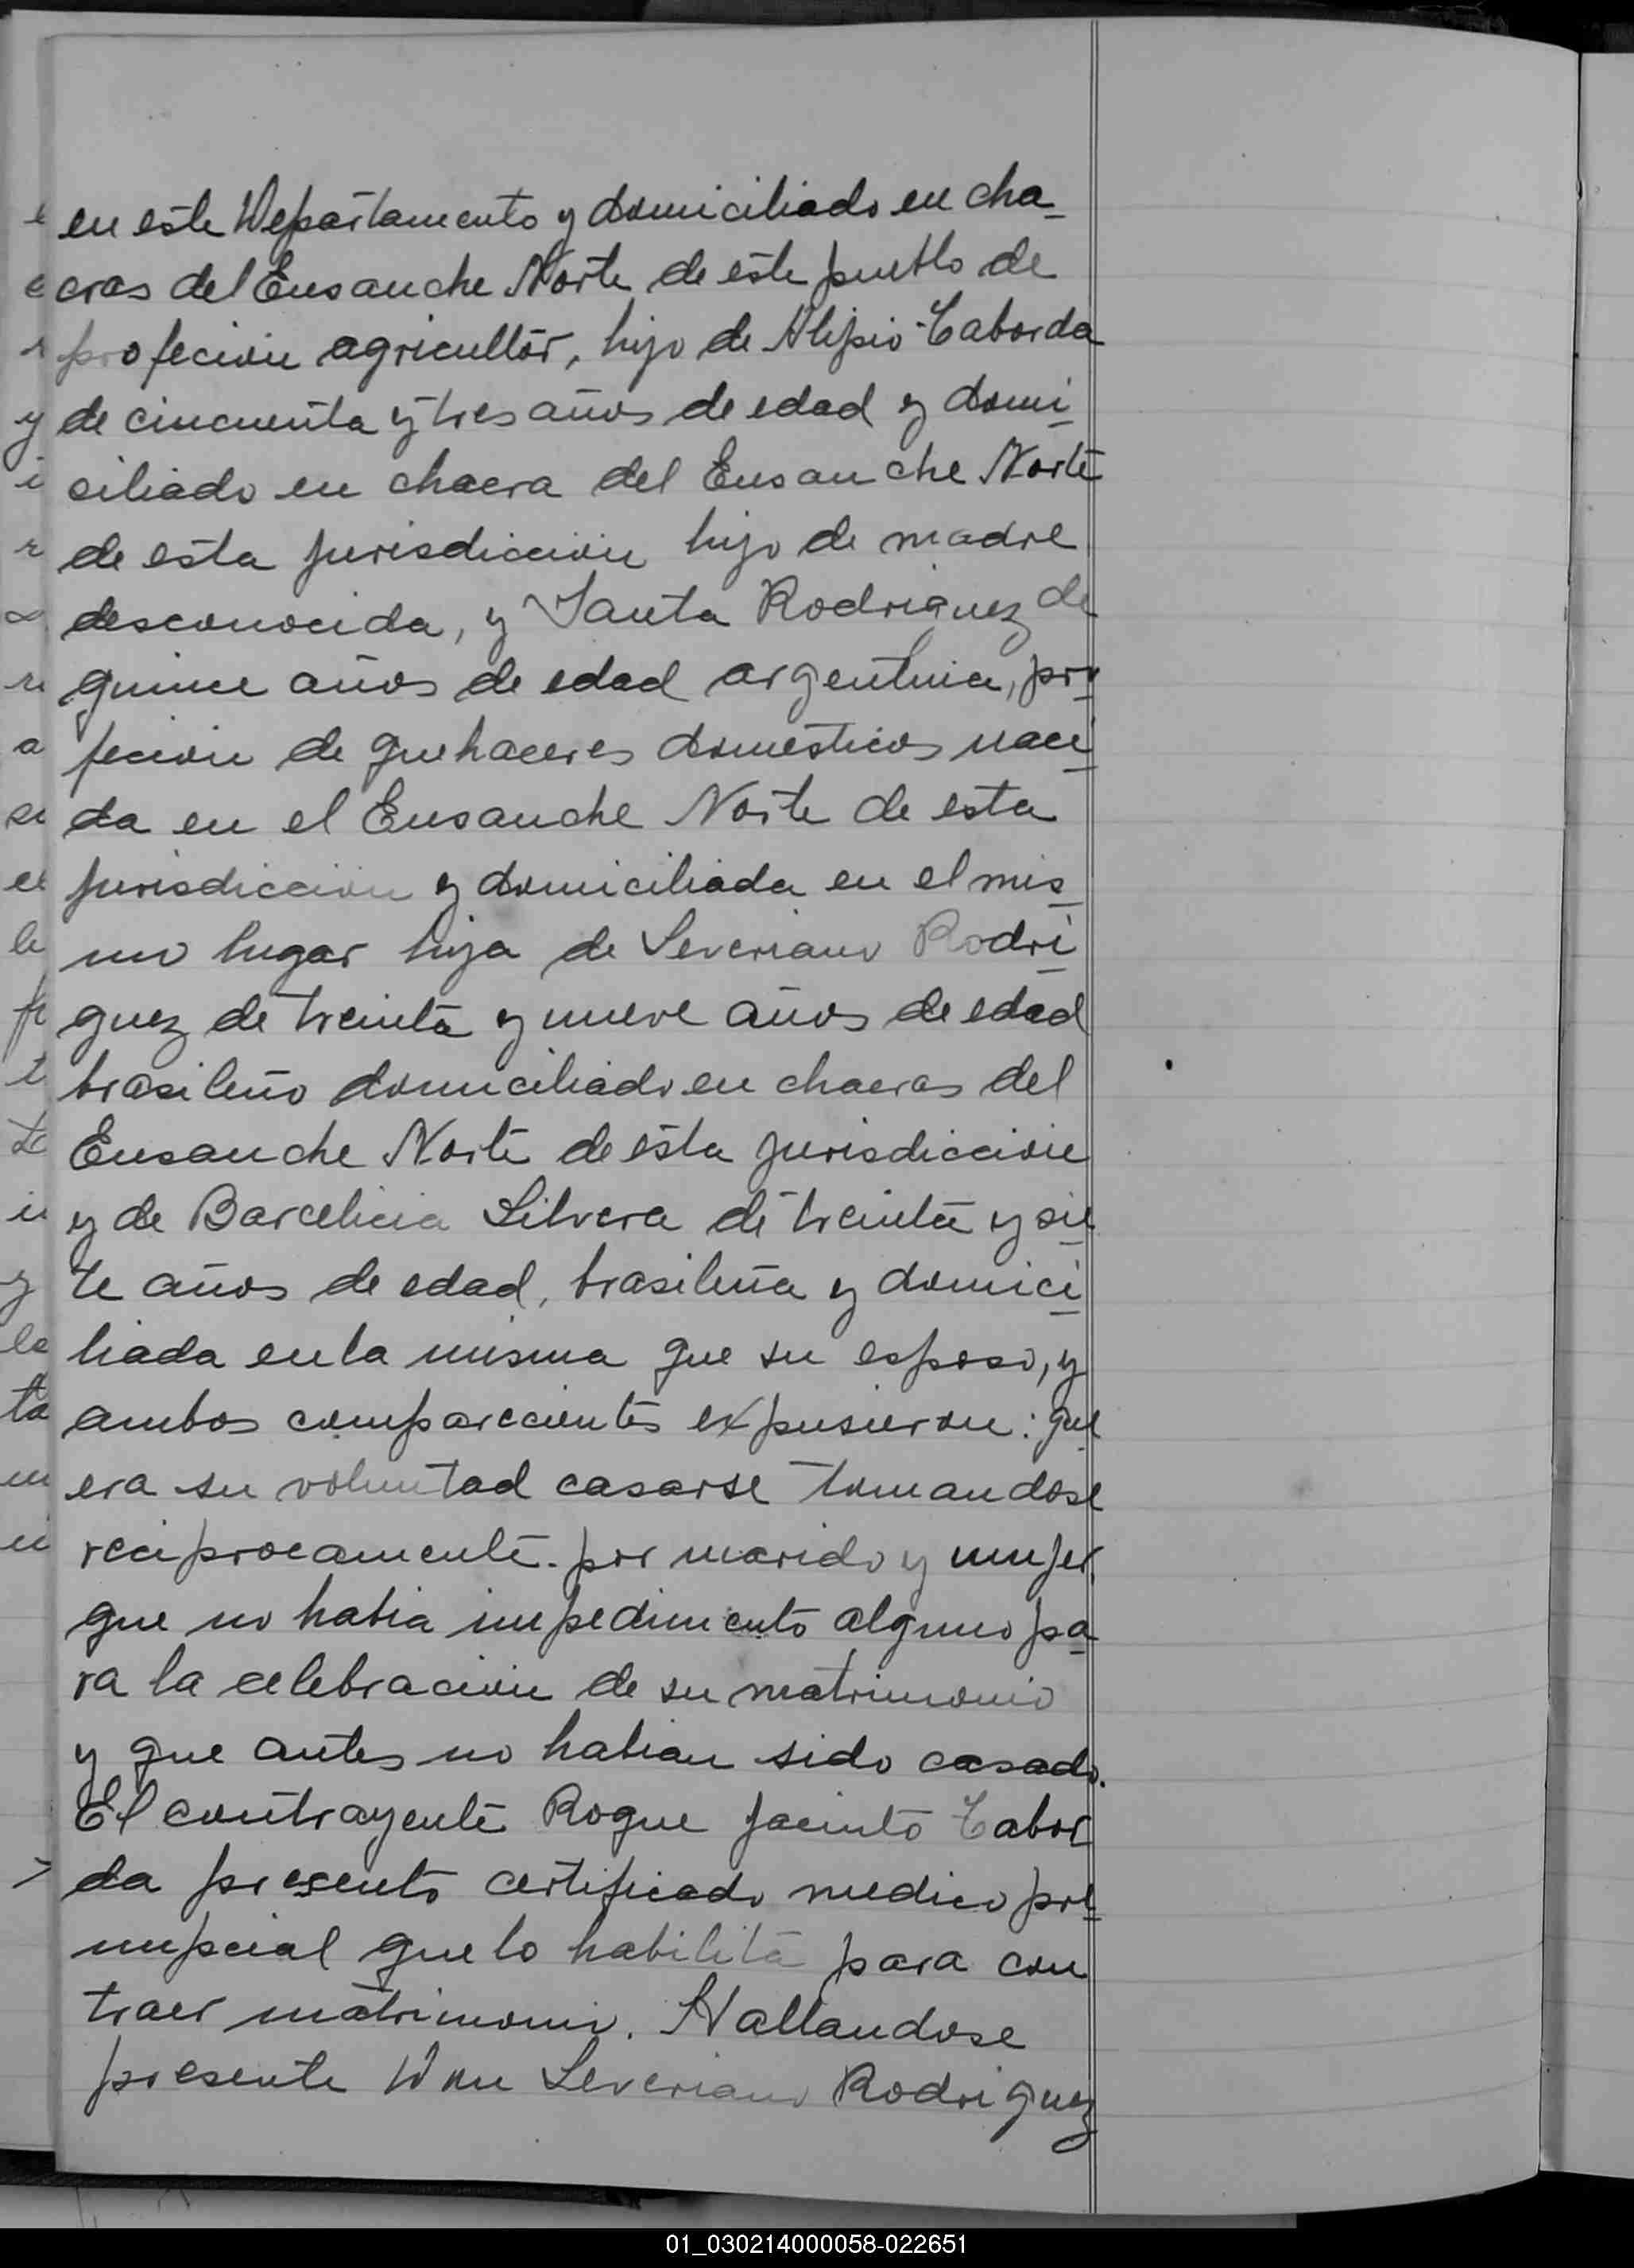 en este Departamento y domiciliado en cha-
cras del Ensanche Norte de este pueblo de
profecion agricultor, hijo de Alipio Taborda
de cincuenta y tres años de edad y domi-
ciliado en chacra del Ensanche Norte
de esta jurisdiccion hijo de madre
desconocida, y Santa Rodriguez de
quince años de edad argentina, pro-
fecion de quehaceres domesticos naci-
da en el Ensanche Norte de esta
jurisdiccion y domiciliada en el mis-
mo lugar hija de Severiano Rodri-
guez de treinta y nueve años de edad
brasileño domiciliado en chacras del
Ensanche Norte de esta jurisdiccion
y de Barcelicia Silvera de treinta y sie-
te años de edad, brasileña y domici-
liada en la misma que su esposo, y
ambos comparecientes expusieron: que
era su voluntad casarse tomandose
reciprocamente por marido y mujer,
que no habia impedimento alguno pa-
ra la celebracion de su matrimonio
y que antes no habian sido casado.
El contrayente Roque Jacinto Tabor-
da presento certificado medico pre-
nupcial que lo habilita para con
traer matrimonio. Hallandose
presente Don Severiano Rodriguez
01_030214000058-022651